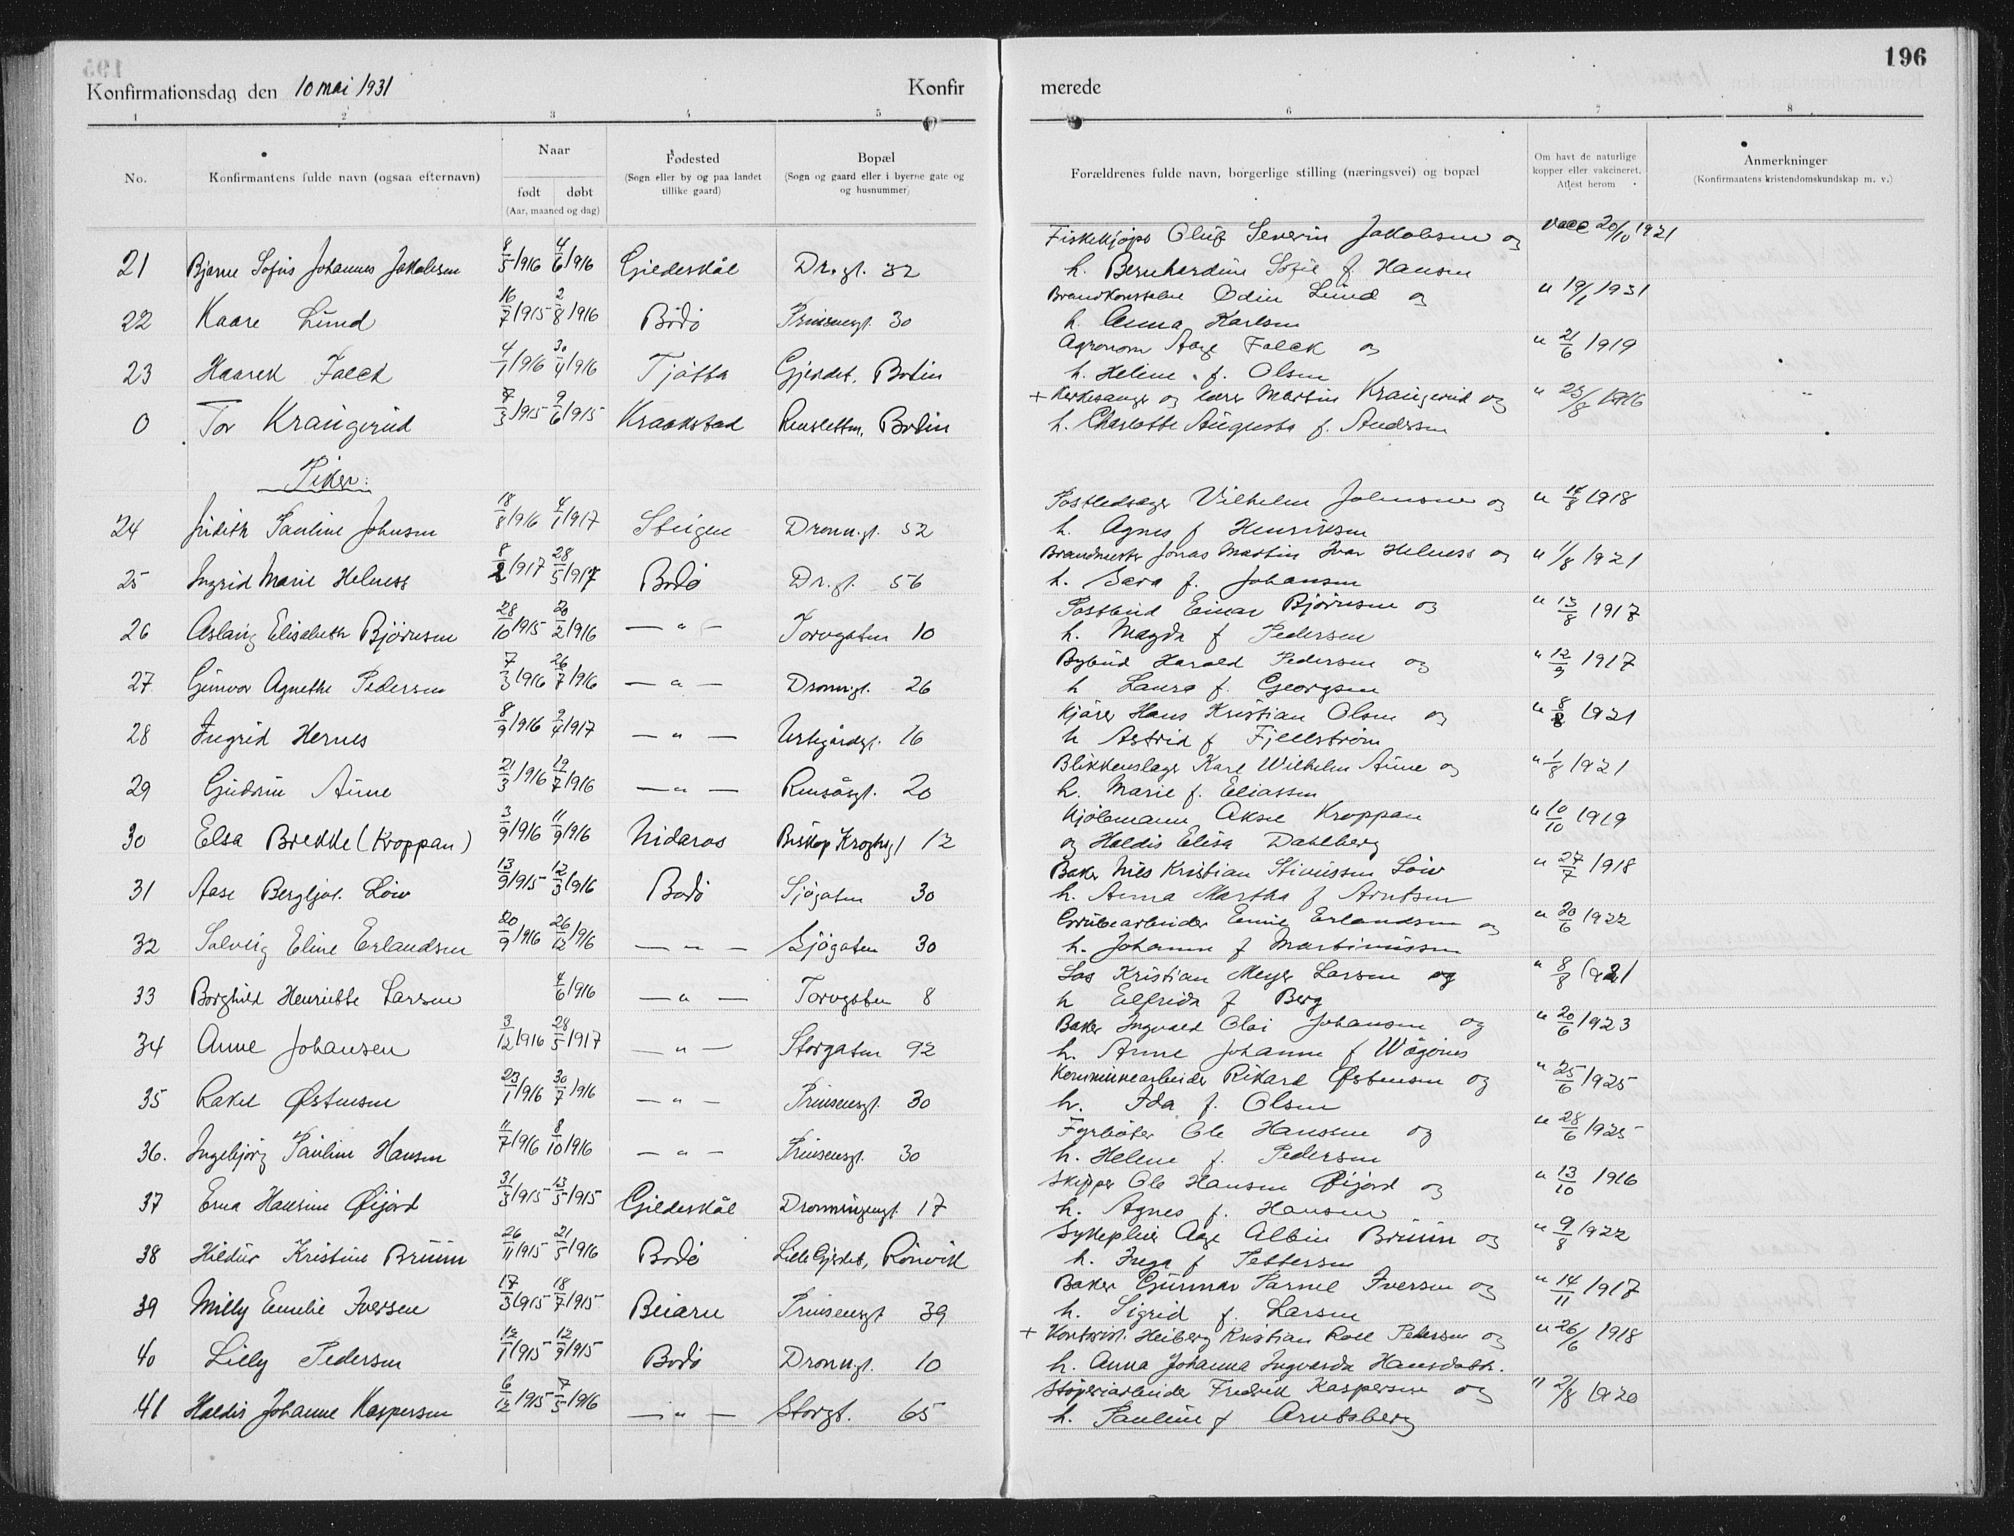 195
196
Konfirmationsdag den 10 mai 1931
Konfirmerede
1 2 3 4 5 6 7 8
No.
Konfirmantens fulde navn (ogsaa efternavn)
Naar
født døbt
(Aar, maaned og dag)
Fødested
(Sogn eller by og paa landet
tillike gaard)
Bopæl
(Sogn og gaard eller i byerne gate og
og husnummer)
Forældrenes fulde navn, borgerlige stilling (næringsvei) og bopæl
Om havt de naturlige
kopper eller vakcineret.
Atlest herom
Anmerkninger
(Konfirmantens kristendomskundskap m. v.)
21 Bjarne Sofus Johannes Jakobsen 8/5 1916 4/6 1916 Gildeskål Dr.gt. 32 Fiskekjøper Oluf Severin Jakobsen og vacc 20/10 1921
h. Bernhardine Sofie f. Hansen
22 Kaare Lund 16/7 1915 2/8 1916 Bodö Prinsensgt. 30 Brandkonstabel Odin Lund og " 19/1 1931
h. Anna Karlsen
23 Haarek Falck 4/1 1916 30/4 1916 Tjötta Gjerdet, Bodin Agronom Aage Falck og " 21/6 1919
h. Helene f. Olsen
0 Tor Kraugerud 7/3 1915 9/6 1915 Kraakstad Rensletten, Bodin + Kirkesanger og lærer Martin Kraugerud og " 23/8 1916
h. Charlotte Augusta f. Andersen
Piker:
24 Judith Pauline Johnsen 18/8 1916 4/1 1917 Steigen Dronn.gt. 52 Postledsager Vilhelm Johnsen og " 14/8 1918
h. Agnes f Henriksen
25 Ingrid Marie Helness 8/2 1917 28/5 1917 Bodö Dr.gt. 56 Brandmester Jonas Martin Ivar Helness og " 1/8 1921
h. Sara f. Johansen
26 Aslaug Elisabeth Björnsen 28/10 1915 20/2 1916 — " — Torvgaten 10 Postbud Einar Björnsen og " 13/8 1917
h. Magda f Pedersen
27 Gunvor Agnethe Pedersen 7/3 1916 26/7 1916 — " — Dronn.gt. 26 Bybud Harald Pedersen og " 12/9 1917
h Laura f. Georgsen
28 Ingrid Hernes 8/9 1916 9/4 1917 — " — 16 Kjörer Hans Kristian Olsen og " 8/8 1921
h Astrid f Fjellström
29 Gudrun Aune 21/3 1916 19/7 1916 — " — Rensåsgt. 20 Blikkenslager Karl Wilhelm Aune og " 1/8 1921
h. Marie f. Eliassen
30 Elsa Brekke (Kroppan) 3/9 1916 11/9 1916 Nidaros Biskop Kroghsgt 12 Kjölemann Aksel Kroppan " 10/10 1919
og Haldis Elisa Dahlberg
31 Aase Bergljot. Löw 13/9 1915 12/3 1916 Bodö Sjögaten 30 Baker Nils Kristian Löw " 27/7 1918
h. Anna Martha f Arntsen
32 Solveig Eline Erlandsen 20/9 1916 26/12 1916 — " — Sjögaten 30 Grubearbeider Emil Erlandsen og " 20/6 1922
h. Johanne f Martinussen
33 Borghild Henriette Larsen 4/6 1916 — " — Torvgaten 8 Los Kristian Meyer Larsen og " 8/8 1921
h Elfrida f Berg
34 Anne Johansen 3/12 1916 28/5 1917 — " — Storgaten 92 Baker Ingvald Olai Johansen og " 20/6 1923
h. Anne Johanne f Wågönes
35 Rakel Østensen 23/1 1916 30/7 1916 — " — Prinsensgt. 30 Kommunearbeider Rikard Østensen og " 25/6 1925
h. Ida f. Olsen
36. Ingebjörg Pauline Hansen 11/7 1916 8/10 1916 — " — Prinsensgt. 30 Fyrböter Ole Hansen og " 28/6 1925
h. Helene f. Pedersen
37 Erna Hansine Øijord 31/3 1915 13/5 1915 Gildeskål Dronningengt. 17 Skipper Ole Hansen Øijord og " 13/10 1916
h. Agnes f. Hansen
38 Hildur Kristine Bruun 26/11 1915 21/5 1916 Bodö Lille Gjerdet, Rönvik Sykepleier Aage Albin Bruun og " 9/8 1922
h. Inga f Pettersen
39 Milly Emelie Iversen 17/3 1915 18/7 1915 Beiarn Prinsensgt 39 Baker Gunnar Parnel Iversen og " 14/11 1917
h. Sigrid f. Larsen
40 Lilly Pedersen 12/1 1915 12/9 1915 Bodö Dronn.gt. 10 + Kontorist. Heiberg Kristian Roll Pedersen og " 26/6 1918
h. Anna Johanna Ingvarda Hansdatt.
41 Haldis Johanne Kaspersen 6/12 1915 7/5 1916 — " — Storgt. 65 Støperiarbeider Fredrik Kaspersen og " 2/8 1920
h. Pauline f Arntsberg